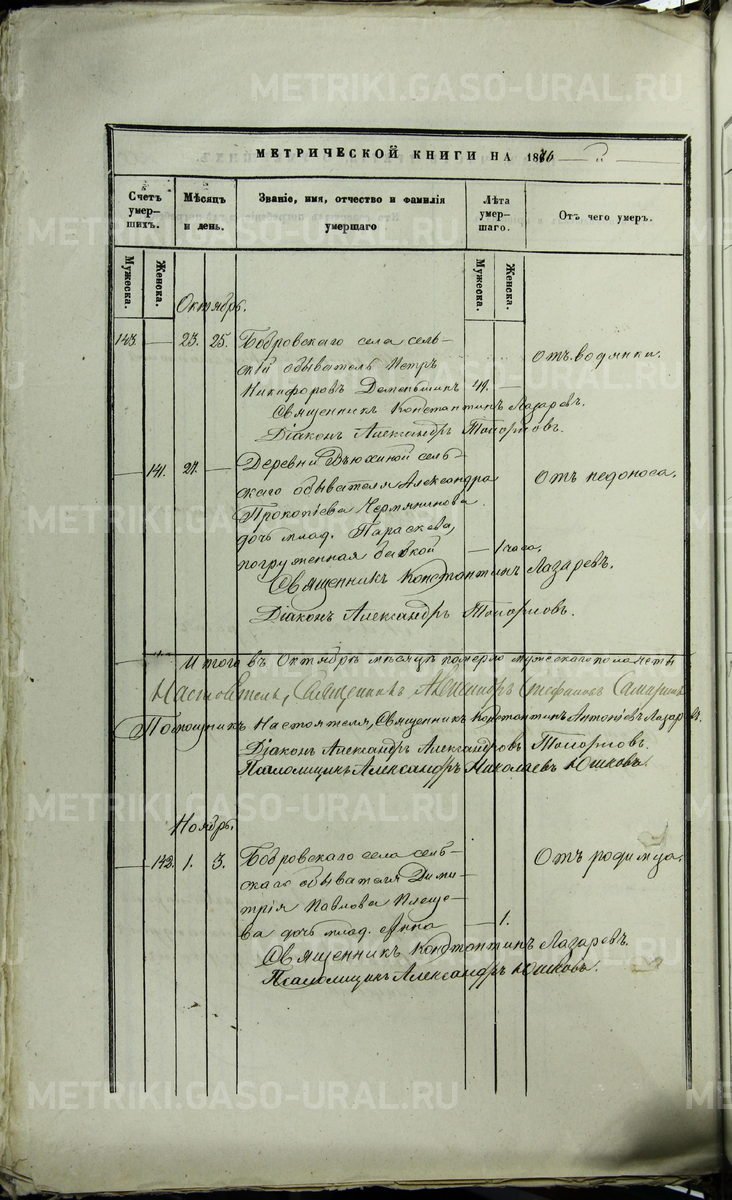 МЕТРИЧЕСКОЙ КНИГИ НА 1876
Счетъ умер-шихъ.
Мѣсяцъ и день.
Званіе, имя, отчество и фамилія умершаго
Лѣта умер-шаго.
Отъ чего умеръ.
Мужеска.
Женска.
Мужеска.
Женска.
Октябрь.
143. — 23. 25. Бобровскаго села сель-
скій обыватель Петръ
Никифоровъ Деменьшинъ 41. — Отъ водянки.
Священникъ Константинъ Лазаревъ.
Діаконъ Александръ Топорковъ.
— 141. 24. — Деревни Вьюхиной сель-
скаго обывателя Александра Отъ недоноса.
Прокопіева Чермянинова
дочь млад. Параскева,
погруженная бабкой — 1 часа.
Священникъ Константинъ Лазаревъ.
Діаконъ Александръ Топорковъ.
Итого въ Октябрѣ мѣсяцѣ померло мужескаго пола
Настоятель, Священникъ Александръ Стефановъ
Помощникъ Настоятеля, Священникъ Константинъ Антоніевъ Лазаревъ.
Діаконъ Александръ Александровъ Топорковъ.
Псаломщикъ Александръ Николаевъ Юшковъ.
Ноябрь.
— 142. 1. 3. Бобровскаго села сель-
скаго обывателя Дими-
трія Павлова Плеще-
ва дочь млад. Анна — 1. Отъ родимца.
Священникъ Константинъ Лазаревъ.
Псаломщикъ Александръ Юшковъ.
METRIKI.GASO-URAL.RU